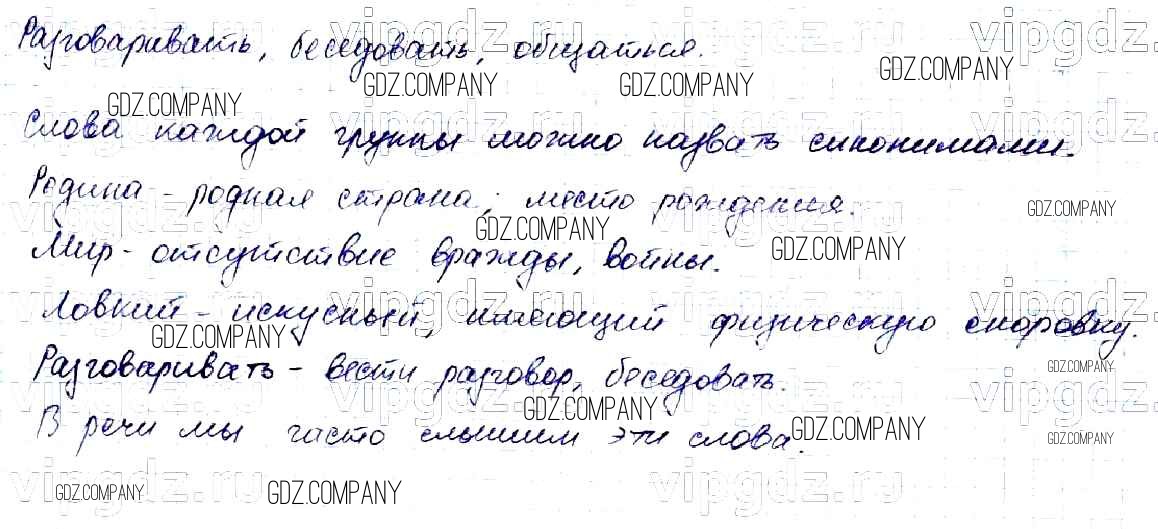 Разговаривать, беседовать, общаться.
Слова каждой группы можно назвать синонимами.
Родина - родная страна, место рождения.
Мир - отсутствие вражды, войны.
Ловкий - искусный, имеющий физическую сноровку.
Разговаривать - вести разговор, беседовать.
В речи мы часто слышим эти слова.
vipgdz.ru
GDZ.COMPANY